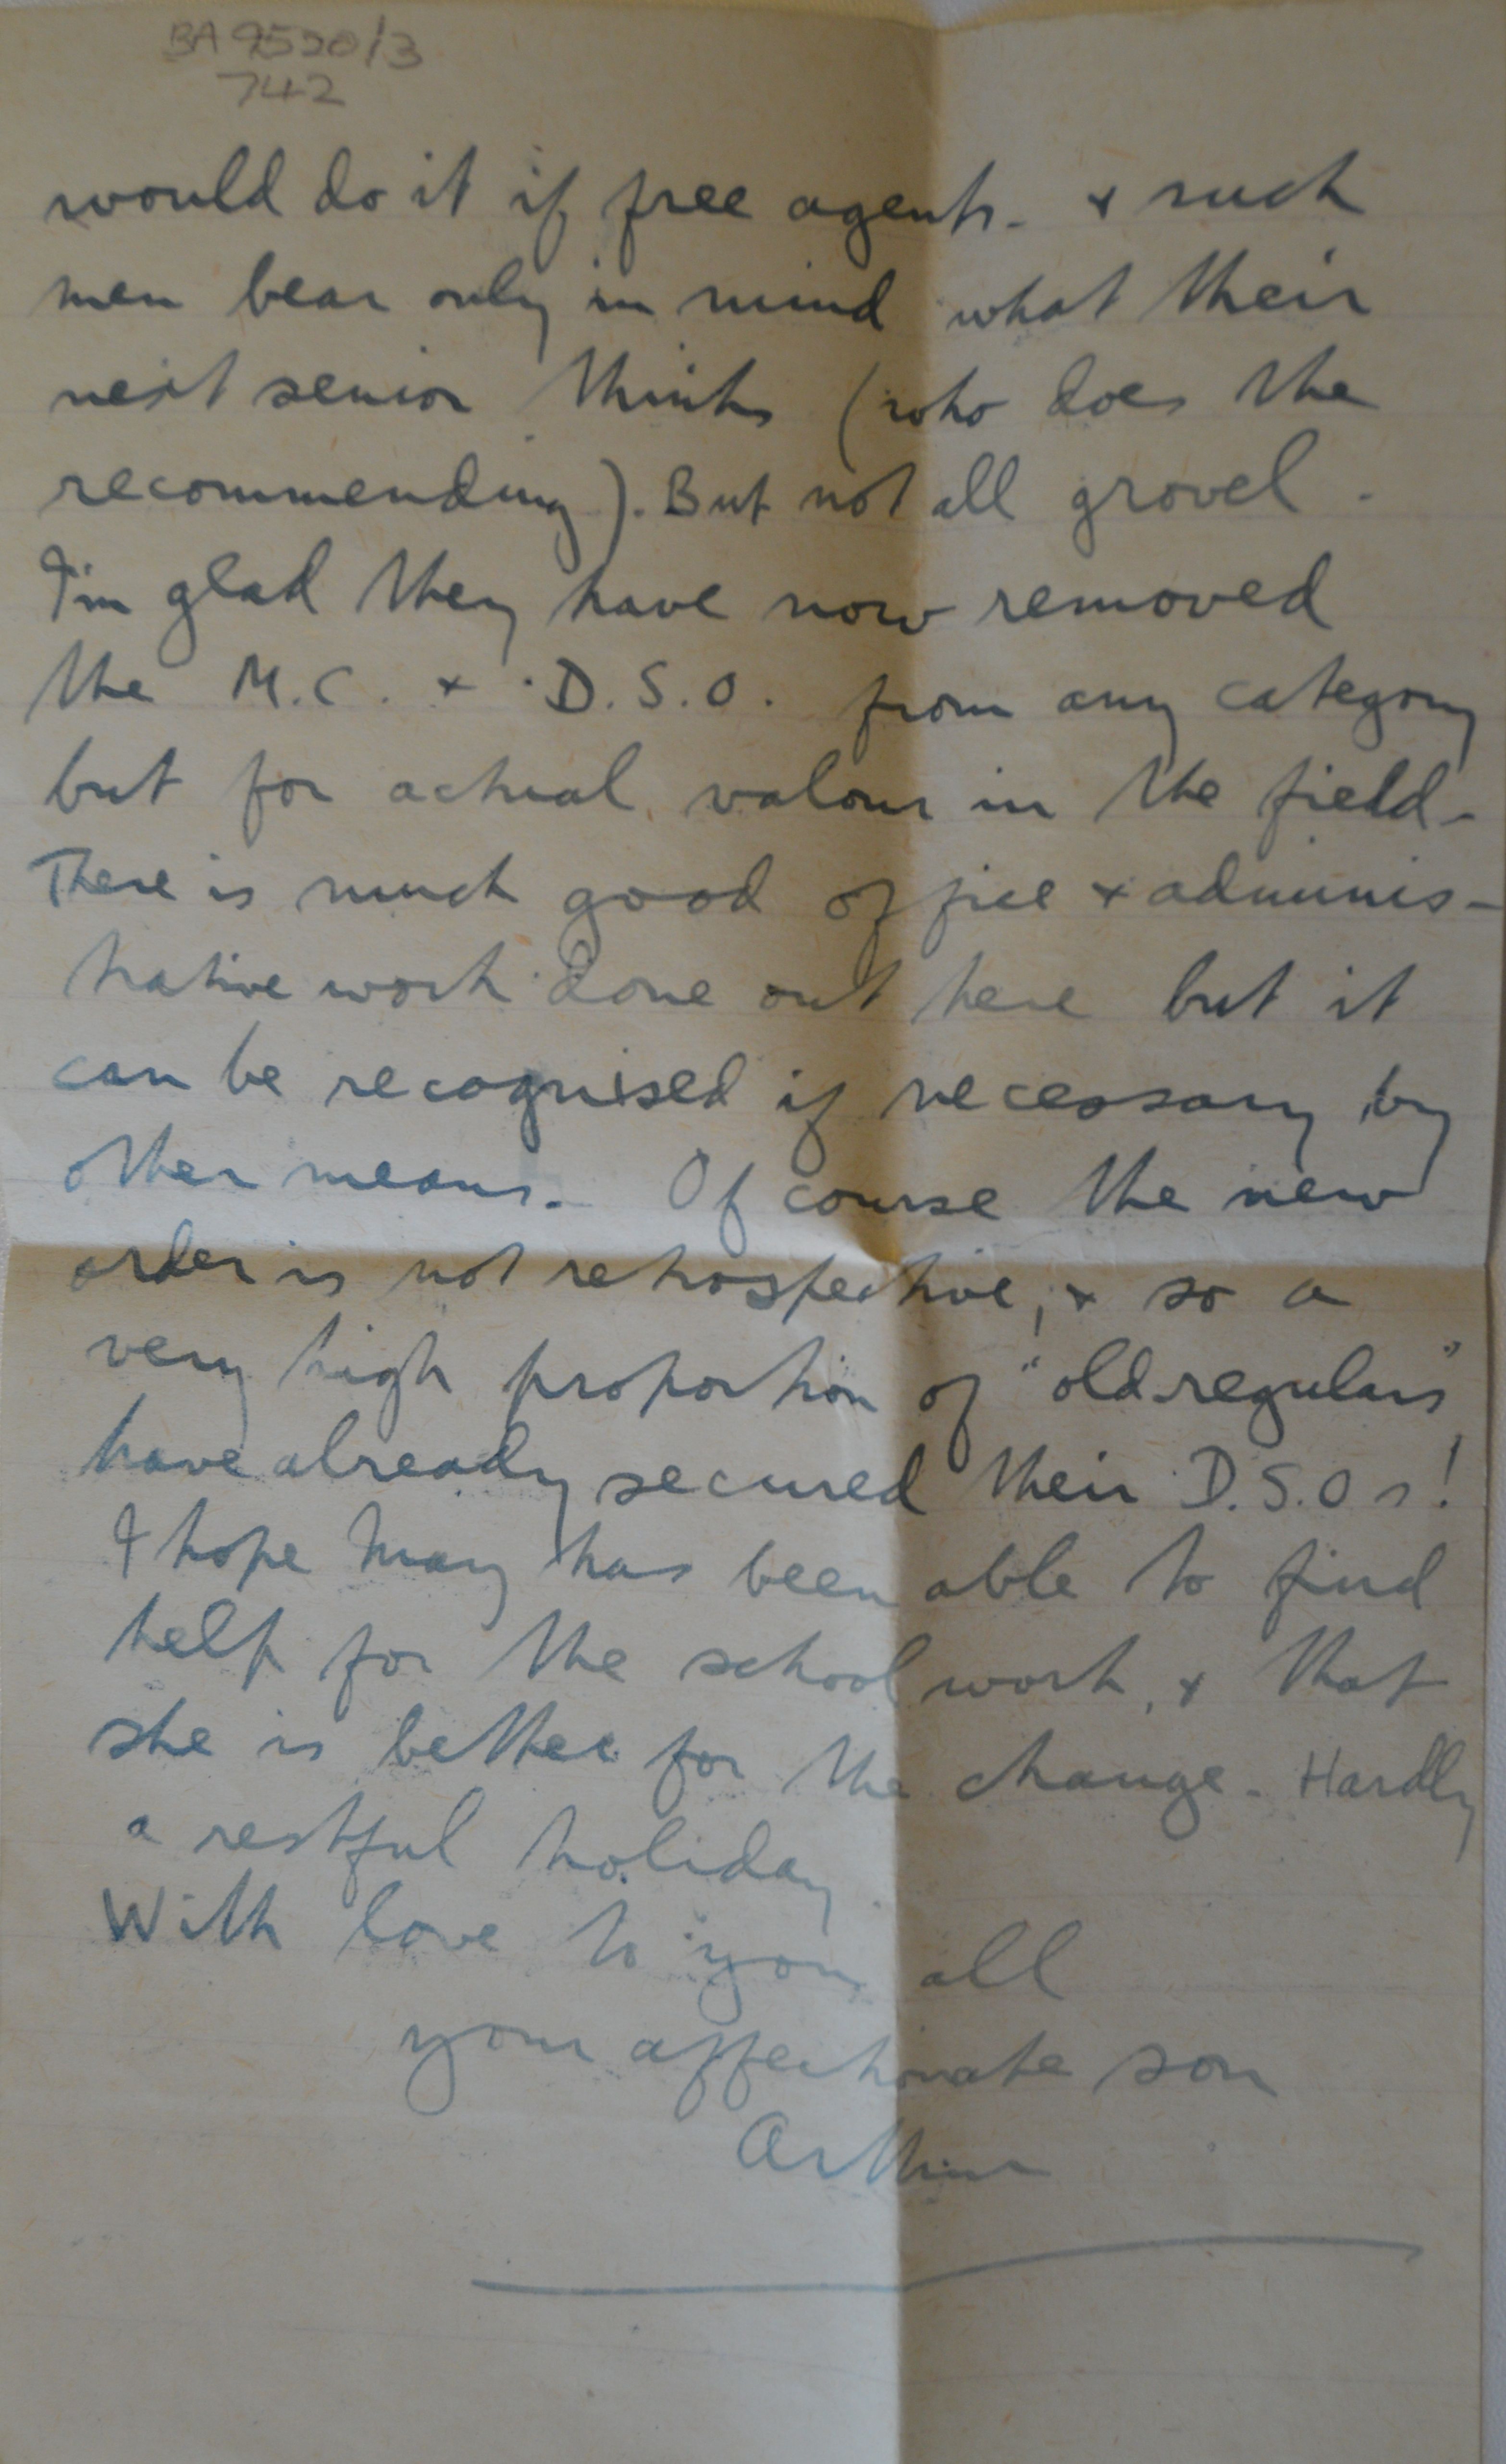 BA 9520/3
742
would do it if free agents - & such
men bear only in mind what their
next senior thinks (who does the
recommending). But not all grovel -
I'm glad they have now removed
the M.C. & D.S.O. from any category
but for actual valour in the field -
There is much good office & adminis-
trative work done out here but it
can be recognised if necessary by
other means. Of course the new
order is not retrospective, & so a
very high proportion of "old regulars"
have already secured their D.S.Os!
I hope Mary has been able to find
help for the school work, & that
she is better for the change. Hardly
a restful holiday
With love to you all
your affectionate son
Arthur